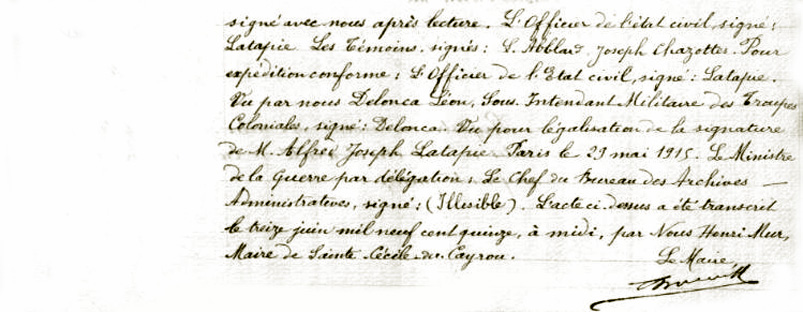 signé avec nous après lecture. L'Officier de l'état civil, signé:
Latapie. Les Témoins, signés: L. Abblard. Joseph Chazottes. Pour
expédition conforme: L'Officier de l'Etat civil, signé: Latapie.
Vu par nous Delonca Léon, Sous. Intendant Militaire des Troupes
Coloniales, signé: Delonca. Vu pour légalisation de la signature
de M. Alfred Joseph Latapie. Paris le 29 mai 1915. Le Ministre
de la Guerre par délégation: Le Chef du Bureau des Archives —
Administratives, signé: (Illisible). L'acte ci-dessus a été transcrit
le treize juin mil neuf cent quinze, à midi, par Nous Henri Mur,
Maire de Sainte Cécile du Cayrou.
Le Maire,